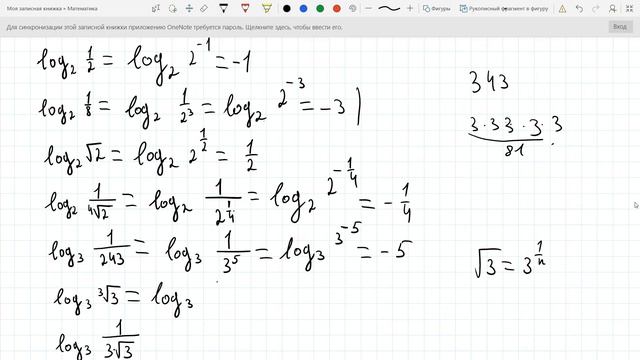 Моя записная книжка » Математика
Фигуры
Рукописный фрагмент в фигуру
Для синхронизации этой записной книжки приложению OneNote требуется пароль. Щелкните здесь, чтобы ввести его.
Вход
log₂ 1/2 = log₂ 2⁻¹ = -1
log₂ 1/8 = log₂ 1/2³ = log₂ 2⁻³ = -3
log₂ √2 = log₂ 2^(1/2) = 1/2
log₂ 1/⁴√2 = log₂ 1/2^(1/4) = log₂ 2^(-1/4) = -1/4
log₃ 1/243 = log₃ 1/3⁵ = log₃ 3⁻⁵ = -5
log₃ ³√3 = log₃
log₃ 1/3√3
343
3·33·3·3
81
√3 = 3^(1/n)